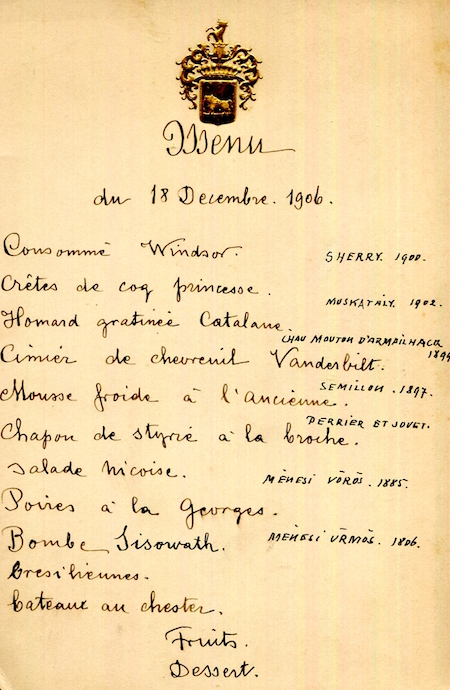 Menu
du 18 Decembre. 1906.
Consommé Windsor.
SHERRY. 1900.
Crêtes de coq princesse.
MUSKATÁLY. 1902.
Homard gratineé Catalane.
CHAU MOUTON D'ARMAILHACQ
1899
Cimier de chevreuil Vanderbilt.
SEMILLON. 1897.
Mousse froide à l'ancienne.
PERRIER ET JOUET.
Chapon de styrie à la broche.
Salade nicoise.
MÈNESI VÖRÖS. 1885.
Poires à la Georges.
Bombe Sisowath.
MÈNESI ÜRMÖS. 1806.
Bresiliennes.
Gateaux au chester.
Fruits.
Dessert.